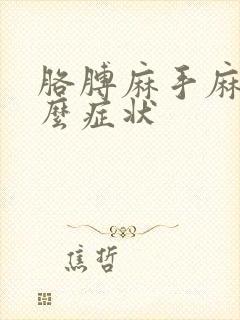 胳膊麻手麻
麼症状
焦哲